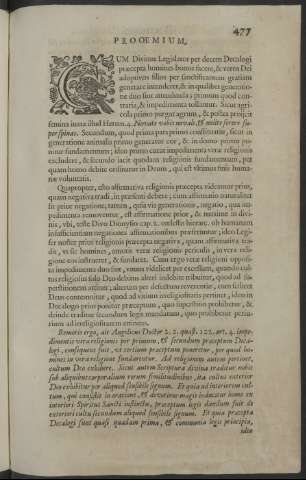 477
PROOEMIUM.
CUM Divinus Legislator per decem Decalogi
præcepta homines bonos facere, & veros Dei
adoptivos filios per sanctificantem gratiam
generare intenderet, & in qualibet generatio-
ne duo sint attendenda: primum quod con-
traria, & impedimenta tollantur. Sicut agri-
cola primo purgat agrum, & postea projicit
semina juxta illud Novate vobis novale, & nolite serere su-
per spinas. Secundum, quod prima pars primo constituatur, sicut in
generatione animalis primo generatur cor, & in domo primo po-
nitur fundamentum; ideo primo curat impedimenta veræ religionis
excludere, & secundo jacit quoddam religionis fundamentum, per
quam homo debite ordinatur in Deum, qui est ultimus finis huma-
næ voluntatis.
Quapropter, etsi affirmativa religionis præcepta videantur prius,
quam negativa tradi
sit prior negatione, tamen
pedimenta removentur, est affirmatione prior, & maxime in divi-
nis
insufficientiam negationes affirmationibus præferuntur; ideo Legi-
fer noster prius religionis præcepta negativa, quam affirmativa tra-
dit, ut sic homines, amotis veræ religionis periculis, in vera reli-
gione eos instrueret, & fundaret. Cum ergo veræ religioni opposi-
ta impedimenta duo sint, unum videlicet per excessum, quando cul-
tus religionis soli Deo debitus alteri indebite tribuitur, quod ad su-
perstitionem attinet; alterum per defectum reverentiæ, cum scilicet
Deus contemnitur, quod ad vitium irreligiositatis pertinet, ideo in
Decalogo prior ponitur præceptum, quo superstitio prohibetur, &
deinde traditur secundum legis mandatum, quo prohibetur perju-
rium ad irreligiositatem attinens.
ait Angelicus Doctor 2. 2. quæst. 122. art. 4. impe-
dimentis veræ religionis per primum, & secundum præceptum Deca-
logi, consequens fuit, ut tertium præceptum poneretur, per quod ho-
mines in vera religione fundarentur. Ad religionem autem pertinet,
cultum Deo exhibere. Sicut autem Scriptura divina traditur nobis
sub aliquibus corporalium rerum similitudinibus, ita cultus exterior
Deo exhibetur per aliquod sensibile signum. Et quia ad interiorem cul-
tum, qui consistit in oratione, & devotione magis inducitur homo ex
interiori Spiritus Sancti instinctu, præceptum legis dandum fuit de
exteriori cultu secundum aliquod sensibile signum. Et quia præcepta
Decalogi sunt quasi quædam prima, & communia legis principia,
ideo